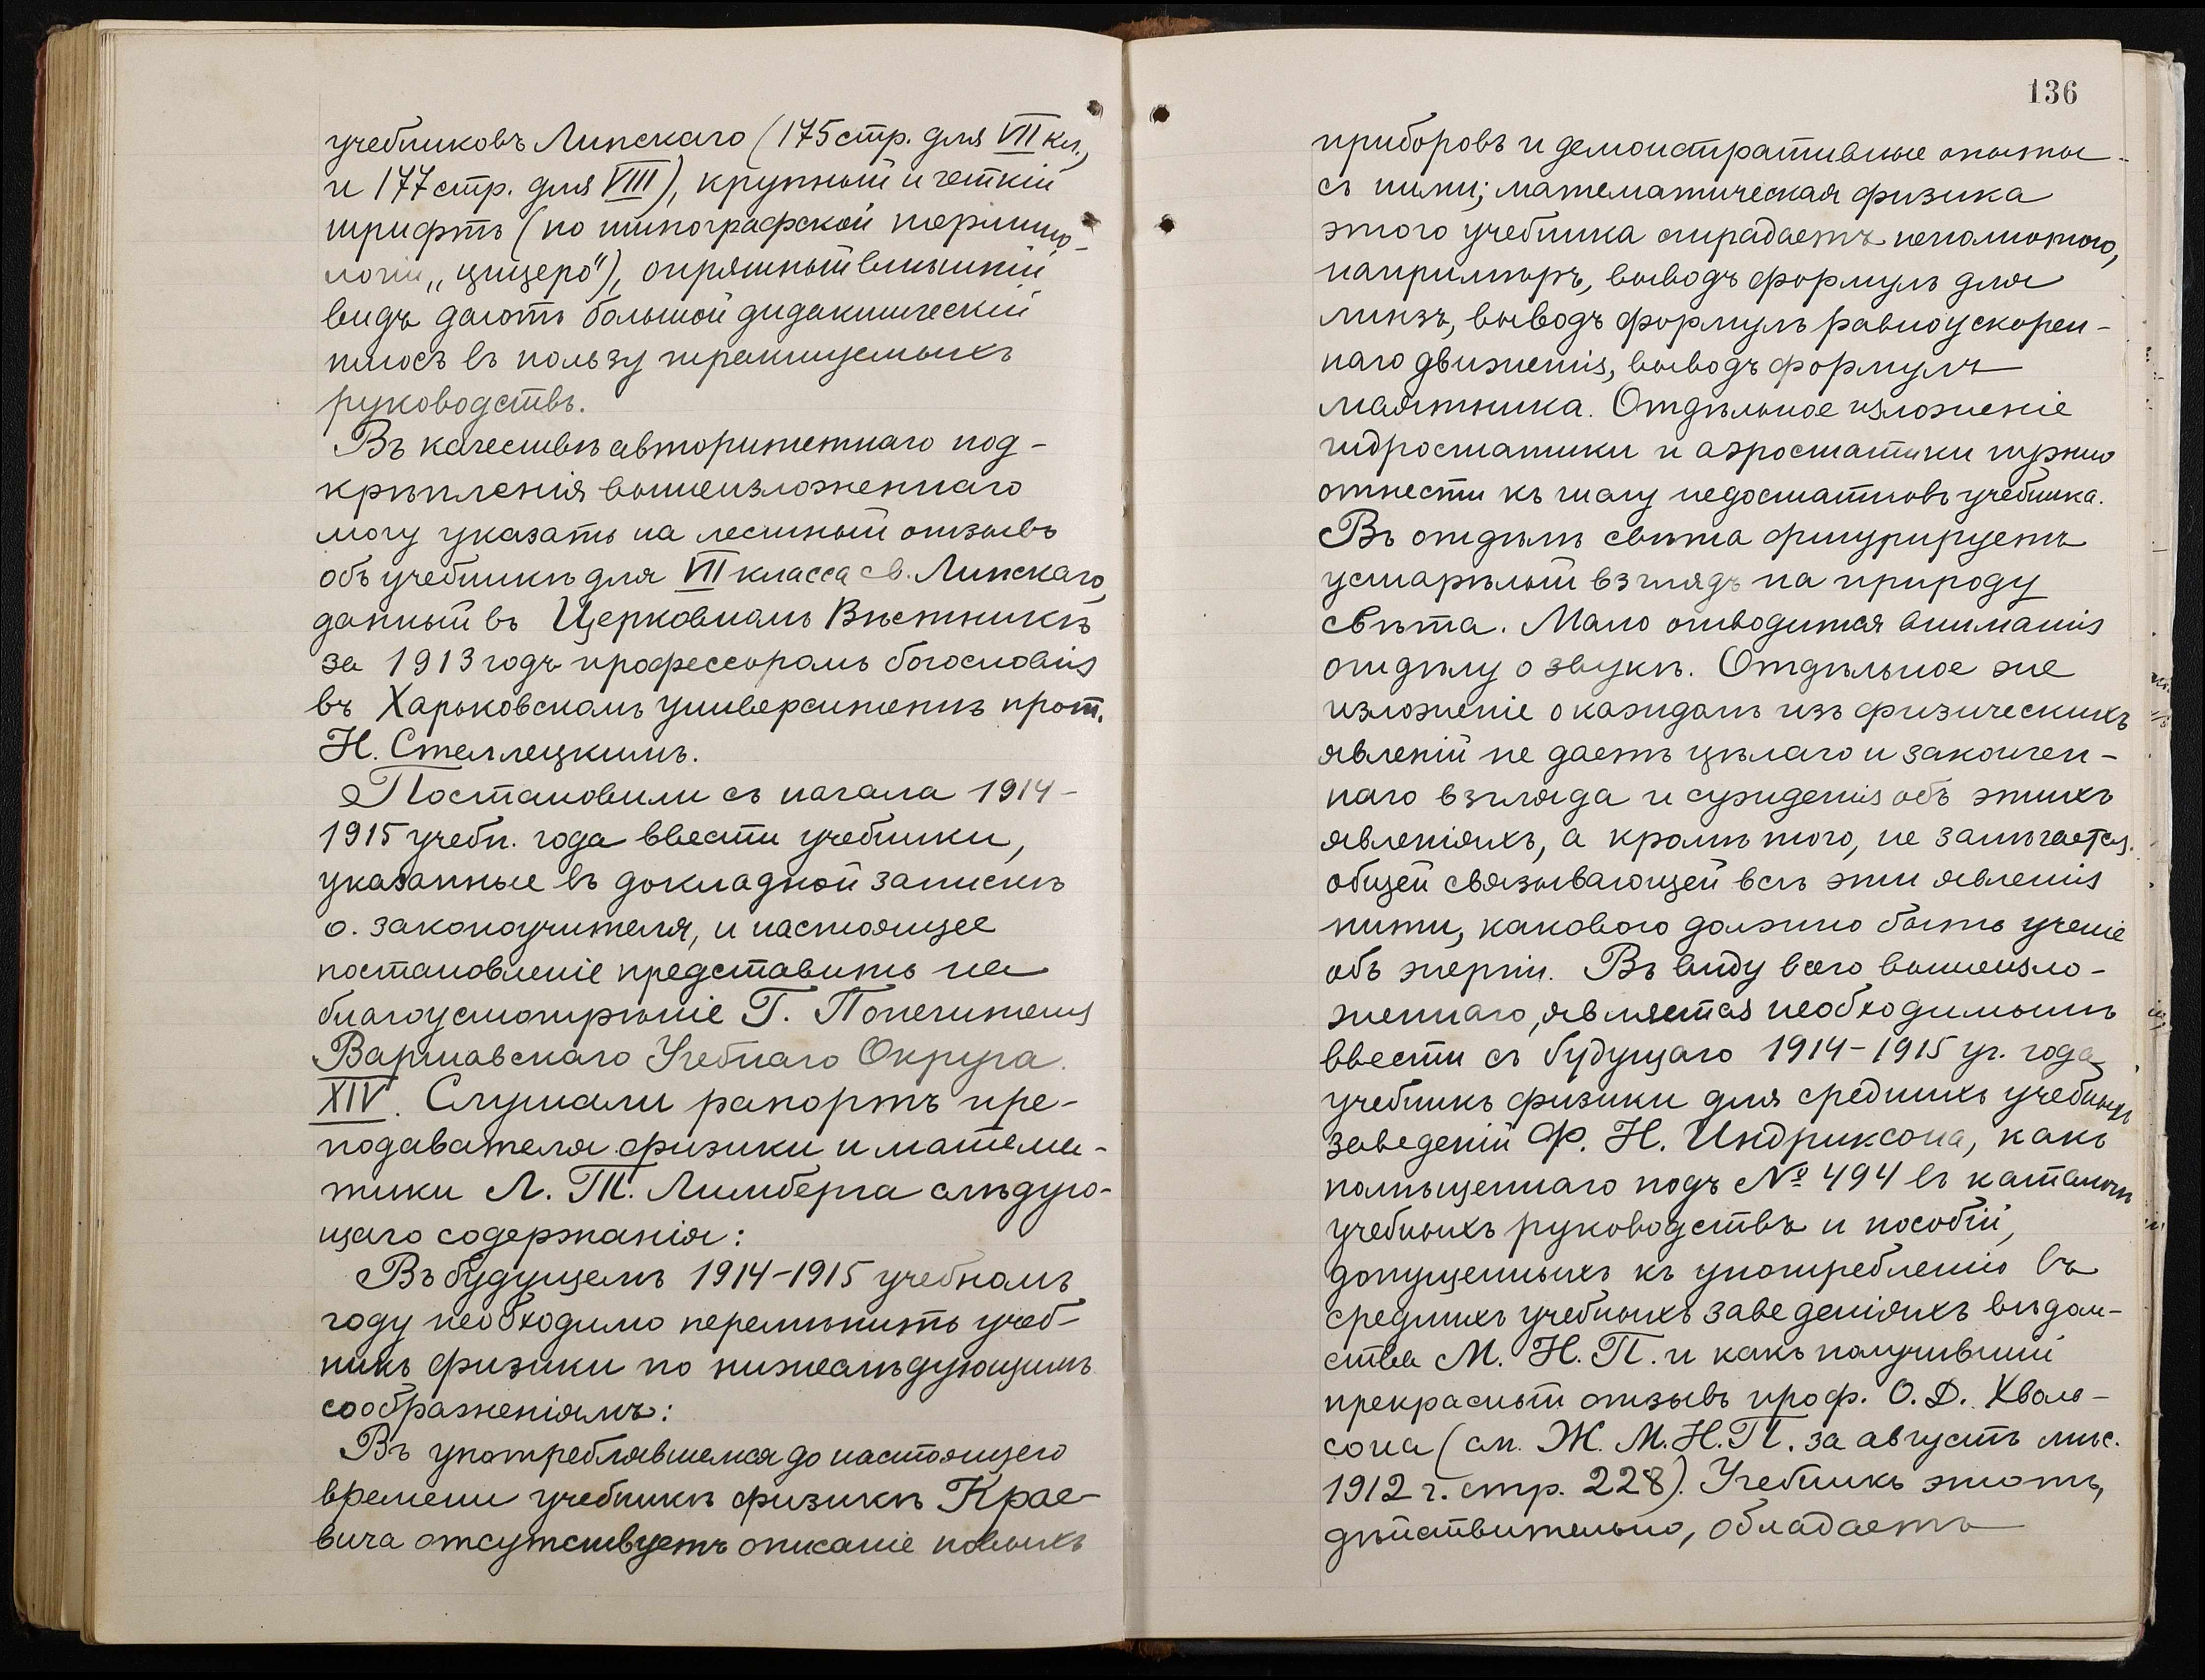 учебниковъ Липскаго (175 стр. для VII кл.,
и 177 стр. для VIII), крупный и четкій
шрифтъ (по типографской термино-
логіи „цицеро"), опрятный внѣшній
видъ даютъ большой дидактическій
плюсъ въ пользу трактуемыхъ
руководствъ.
Въ качествѣ авторитетнаго под-
крѣпленія вышеизложеннаго
могу указать на лестный отзывъ
объ учебникѣ для VII класса св. Липскаго,
данный въ Церковномъ Вѣстникѣ
за 1913 годъ профессоромъ богословія
въ Харьковскомъ университетѣ прот.
Н. Стеллецкимъ.
Постановили съ начала 1914-
1915 учебн. года ввести учебники,
указанные въ докладной запискѣ
о. законоучителя, и настоящее
постановленіе представить на
благоусмотрѣніе Г. Попечителя
Варшавскаго Учебнаго Округа.
XIV. Слушали рапортъ пре-
подавателя физики и матема-
тики Л. Т. Лимберга слѣдую-
щаго содержанія:
Въ будущемъ 1914-1915 учебномъ
году необходимо перемѣнить учеб-
никъ физики по нижеслѣдующимъ
соображеніямъ:
Въ употреблявшемся до настоящего
времени учебникѣ физикѣ Крае-
вича отсутствуетъ описаніе новыхъ
136
приборовъ и демонстративные опыты
съ ними; математическая физика
этого учебника страдаетъ неполнотою,
напримѣръ, выводъ формулъ для
линзъ, выводъ формулъ равноускорен-
наго движенія, выводъ формулъ
маятника. Отдѣльное изложеніе
гидростатики и аэростатики нужно
отнести къ числу недостатковъ учебника.
Въ отдѣлѣ свѣта фигурируетъ
устарѣлый взглядъ на природу
свѣта. Мало отводится вниманія
отдѣлу о звукѣ. Отдѣльное же
изложеніе о каждомъ изъ физическихъ
явленій не даетъ цѣлаго и закончен-
наго взгляда и сужденія объ этихъ
явленіяхъ, а кромѣ того, не замѣчается
общей связывающей всѣ эти явленія
нити, какового должно быть ученіе
объ энергіи. Въ виду всего вышеизло-
женнаго, является необходимымъ
ввести съ будущаго 1914-1915 уч. года
учебникъ физики для среднихъ учебныхъ
заведеній Ф. Н. Индриксона, какъ
помѣщеннаго подъ № 494 въ каталогѣ
учебныхъ руководствъ и пособій,
допущенныхъ къ употребленію въ
среднихъ учебныхъ заведеніяхъ вѣдом-
ства М. Н. П. и какъ получившій
прекрасный отзывъ проф. О. Д. Хволь-
сона (см. Ж. М. Н. П. за августъ мѣс.
1912 г. стр. 228). Учебникъ этотъ,
дѣйствительно, обладаетъ